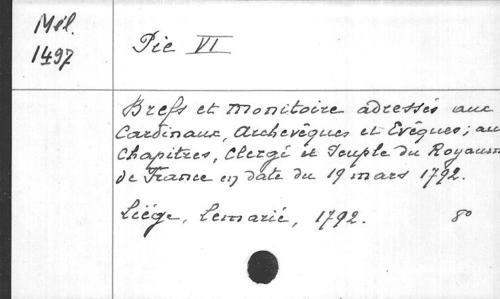 Mél.
1497
Pie VI
Brefs et Monitoire adressés aux
Cardinaux, Archevêques et Evêques; au
Chapitres, Clergé et Peuple du Royaum
de France en date du 19 mars 1792.
Liége, Lemarié, 1792. 8o